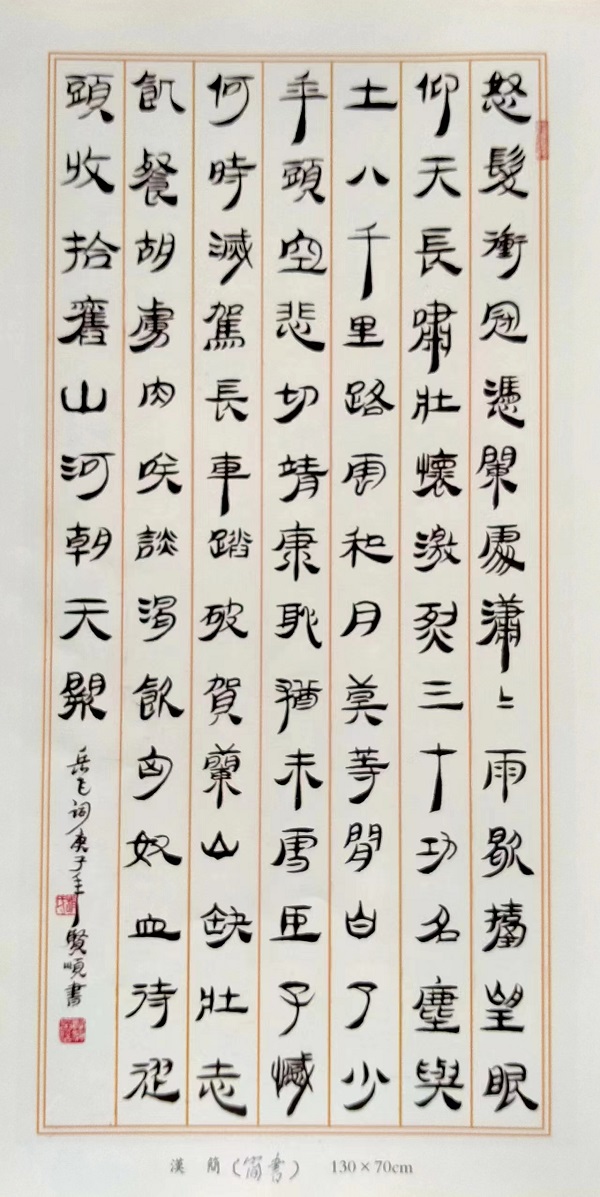 怒髮衝冠憑闌處瀟〻雨歇擡望眼
仰天長嘯壯懷激烈三十功名塵與
土八千里路雲和月莫等閒白了少
年頭空悲切靖康恥猶未雪臣子憾
何時滅駕長車踏破賀蘭山缺壯志
飢餐胡虜肉咲談渴飲匈奴血待從
頭收拾舊山河朝天闕
岳飛詞庚子年賢順書
漢簡(簡書) 130×70cm